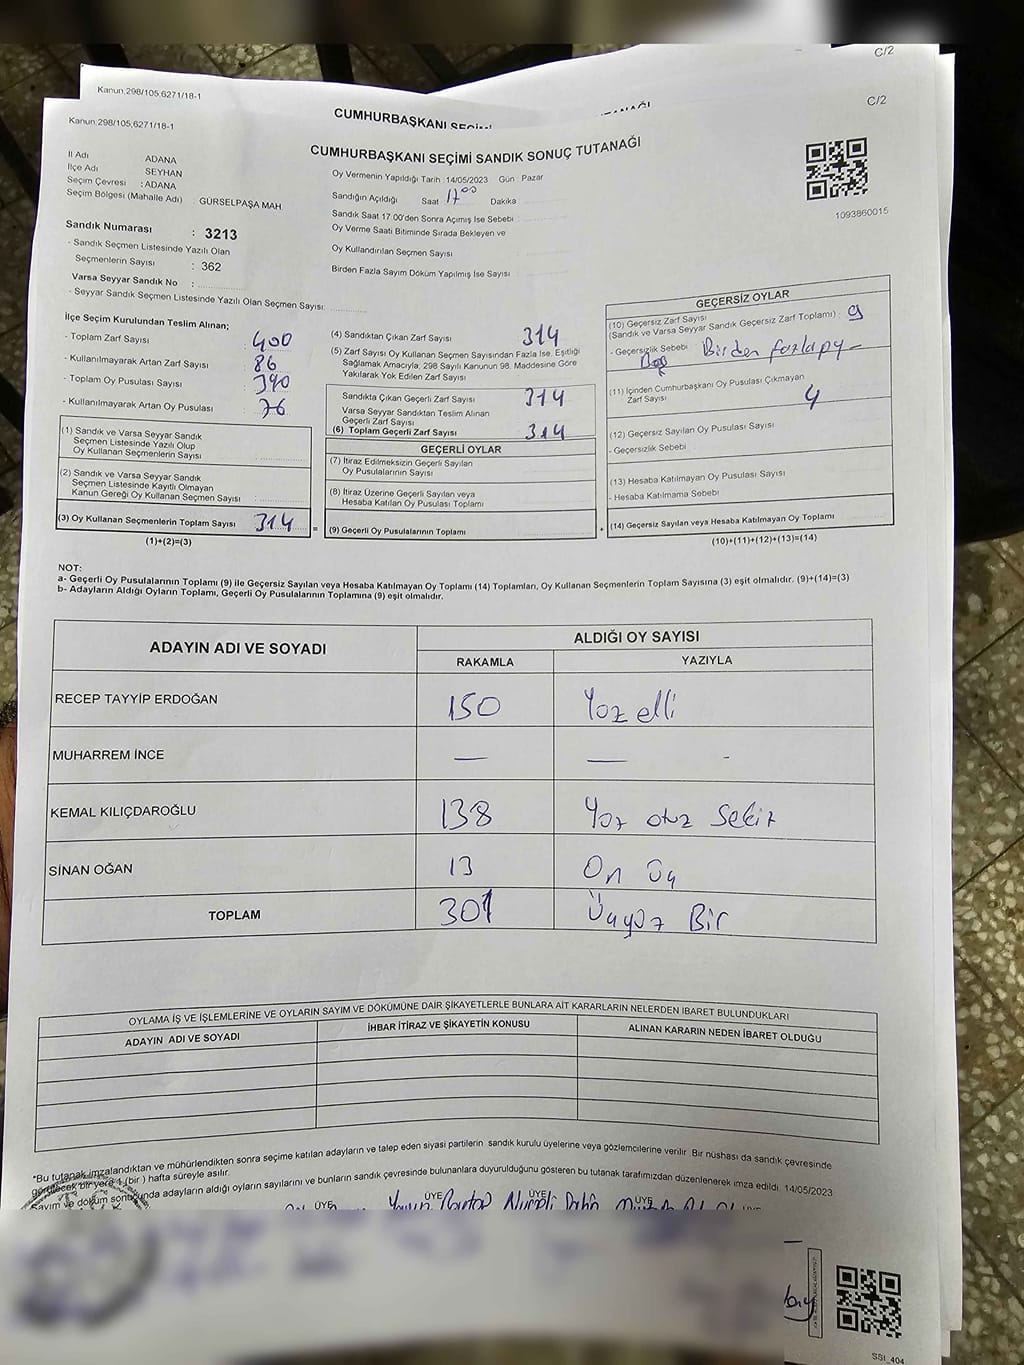 C/2
Kanun.298/105,6271/18-1
CUMHURBAŞKANI SEÇİMİ
C/2
Kanun:298/105,6271/18-1
CUMHURBAŞKANI SEÇİMİ SANDIK SONUÇ TUTANAĞI
İl Adı ADANA
İlçe Adı SEYHAN
Seçim Çevresi : ADANA
Seçim Bölgesi (Mahalle Adı) : GÜRSELPAŞA MAH.
Sandık Numarası : 3213
- Sandık Seçmen Listesinde Yazılı Olan
Seçmenlerin Sayısı : 362
Varsa Seyyar Sandık No :
- Seyyar Sandık Seçmen Listesinde Yazılı Olan Seçmen Sayısı:
Oy Vermenin Yapıldığı Tarih : 14/05/2023 Gün Pazar
Sandığın Açıldığı Saat 17⁰⁰ Dakika
Sandık Saat 17:00'den Sonra Açımış İse Sebebi :
Oy Verme Saati Bitiminde Sırada Bekleyen ve
Oy Kullandırılan Seçmen Sayısı
Birden Fazla Sayım Döküm Yapılmış İse Sayısı
1093860015
İlçe Seçim Kurulundan Teslim Alınan;
- Toplam Zarf Sayısı 400
- Kullanılmayarak Artan Zarf Sayısı 86
- Toplam Oy Pusulası Sayısı 390
- Kullanılmayarak Artan Oy Pusulası 76
(1) Sandık ve Varsa Seyyar Sandık
Seçmen Listesinde Yazılı Olup
Oy Kullanan Seçmenlerin Sayısı
(2) Sandık ve Varsa Seyyar Sandık
Seçmen Listesinde Kayıtlı Olmayan
Kanun Gereği Oy Kullanan Seçmen Sayısı
(3) Oy Kullanan Seçmenlerin Toplam Sayısı 314
(1)+(2)=(3)
(4) Sandıktan Çıkan Zarf Sayısı 314
(5) Zarf Sayısı Oy Kullanan Seçmen Sayısından Fazla İse, Eşitliği
Sağlamak Amacıyla; 298 Sayılı Kanunun 98. Maddesine Göre
Yakılarak Yok Edilen Zarf Sayısı
Sandıkta Çıkan Geçerli Zarf Sayısı 314
Varsa Seyyar Sandıktan Teslim Alınan
Geçerli Zarf Sayısı
(6) Toplam Geçerli Zarf Sayısı 314
GEÇERLİ OYLAR
(7) İtiraz Edilmeksizin Geçerli Sayılan
Oy Pusulalarının Sayısı
(8) İtiraz Üzerine Geçerli Sayılan veya
Hesaba Katılan Oy Pusulası Toplamı
= (9) Geçerli Oy Pusulaların Toplamı
GEÇERSİZ OYLAR
(10) Geçersiz Zarf Sayısı
(Sandık ve Varsa Seyyar Sandık Geçersiz Zarf Toplamı) : 9
- Geçersizlik Sebebi Birden fazla
(11) İçinden Cumhurbaşkanı Oy Pusulası Çıkmayan
Zarf Sayısı 4
(12) Geçersiz Sayılan Oy Pusulası Sayısı
- Geçersizlik Sebebi
(13) Hesaba Katılmayan Oy Pusulası Sayısı
- Hesaba Katılmama Sebebi
+ (14) Geçersiz Sayılan veya Hesaba Katılmayan Oy Toplamı
(10)+(11)+(12)+(13)=(14)
NOT:
a- Geçerli Oy Pusulalarının Toplamı (9) ile Geçersiz Sayılan veya Hesaba Katılmayan Oy Toplamı (14) Toplamları, Oy Kullanan Seçmenlerin Toplam Sayısına (3) eşit olmalıdır. (9)+(14)=(3)
b- Adayların Aldığı Oyların Toplamı, Geçerli Oy Pusulalarının Toplamına (9) eşit olmalıdır.
ADAYIN ADI VE SOYADI
ALDIĞI OY SAYISI
RAKAMLA YAZIYLA
RECEP TAYYİP ERDOĞAN 150 Yüz elli
MUHARREM İNCE — — -
KEMAL KILIÇDAROĞLU 138 Yüz otuz Sekiz
SİNAN OĞAN 13 On üç
TOPLAM 301 Üçyüz Bir
OYLAMA İŞ VE İŞLEMLERİNE VE OYLARIN SAYIM VE DÖKÜMÜNE DAİR ŞİKAYETLERLE BUNLARA AİT KARARLARIN NELERDEN İBARET BULUNDUKLARI
ADAYIN ADI VE SOYADI İHBAR İTİRAZ VE ŞİKAYETİN KONUSU ALINAN KARARIN NEDEN İBARET OLDUĞU
*Bu tutanak imzalandıktan ve mühürlendikten sonra seçime katılan adayların ve talep eden siyasi partilerin sandık kurulu üyelerine veya gözlemcilerine verilir. Bir nüshası da sandık çevresinde
görülecek bir yere 1 (bir ) hafta süreyle asılır.
Sayım ve döküm sonucunda adayların aldığı oyların sayılarını ve bunların sandık çevresinde bulunanlara duyurulduğunu gösteren bu tutanak tarafımızdan düzenlenerek imza edildi. 14/05/2023
ÜYE ÜYE ÜYE ÜYE ÜYE
SSI_404